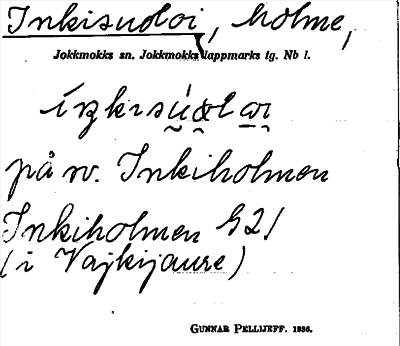 Inkisudoi, holme,
Jokkmokks sn. Jokkmokks lappmarks tg. Nb l.
på sv. Inkiholmen
Inkiholmen G21
(i Vajkijaure)
GUNNAR PELLIJEFF. 1936.